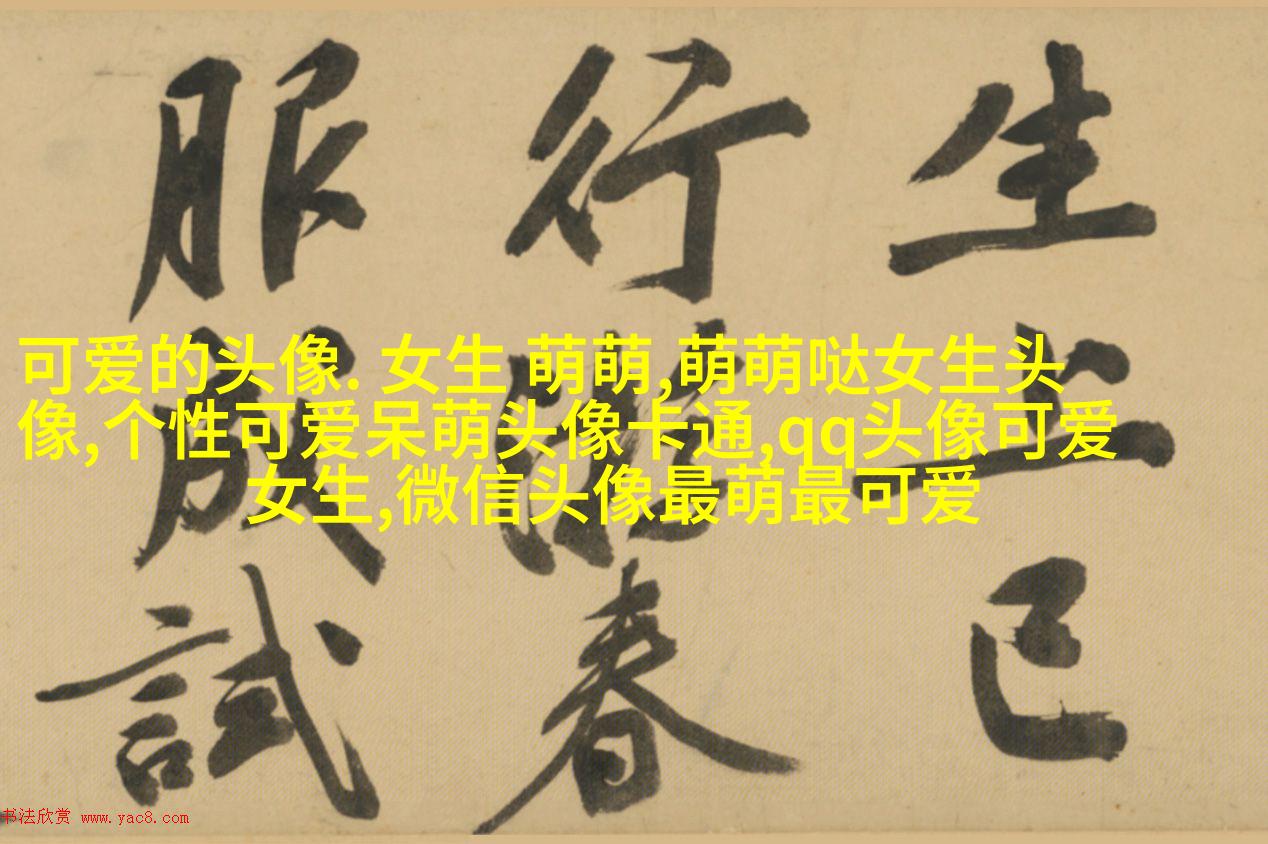 生上已
行春
服成試
可爱的头像. 女生 萌萌,萌萌哒女生头
像,个性可爱呆萌头像卡通,qq头像可爱
女生,微信头像最萌最可爱
书法欣赏 www.yac8.com